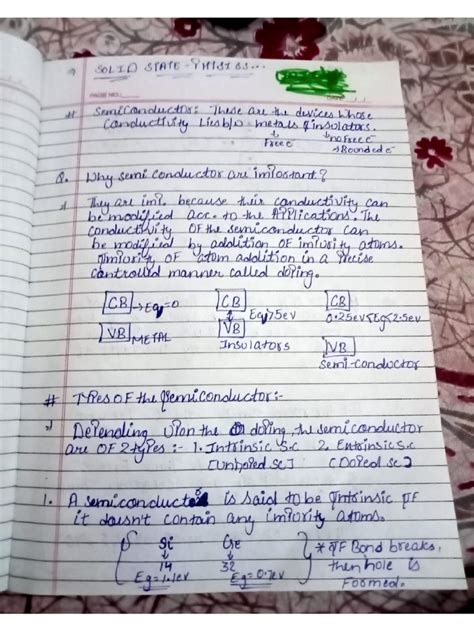 SOLID STATE - PHYSICS...
PAGE NO.:
# Semiconductor: These are the devices whose
Conductivity lies b/w metals & insulators.
↓ Free e ↓ no free e
→ Bounded e
Q. Why semi conductor are important?
They are imp. because their conductivity can
be modified acc. to the Applications. The
conductivity of the semiconductor can
be modified by addition of impurity atoms.
Impurity of atom addition in a precise
controlled manner called doping.
CB → Eg=0 CB CB
↕ Eg>5ev 0.25ev≤Eg≤2.5ev
VB METAL VB VB
Insulators Semi-conductor
# Types of the Semiconductor:-
Depending upon the doping, the semiconductor
are of 2 types:- 1. Intrinsic S.C 2. Extrinsic S.C
[Undoped sc] [Doped sc]
1. A semiconductor is said to be Intrinsic if
it doesn't contain any impurity atoms.
Si Ge * If Bond breaks,
↓ ↓ then hole is
14 32 Formed.
Eg=1.1ev Eg=0.7ev